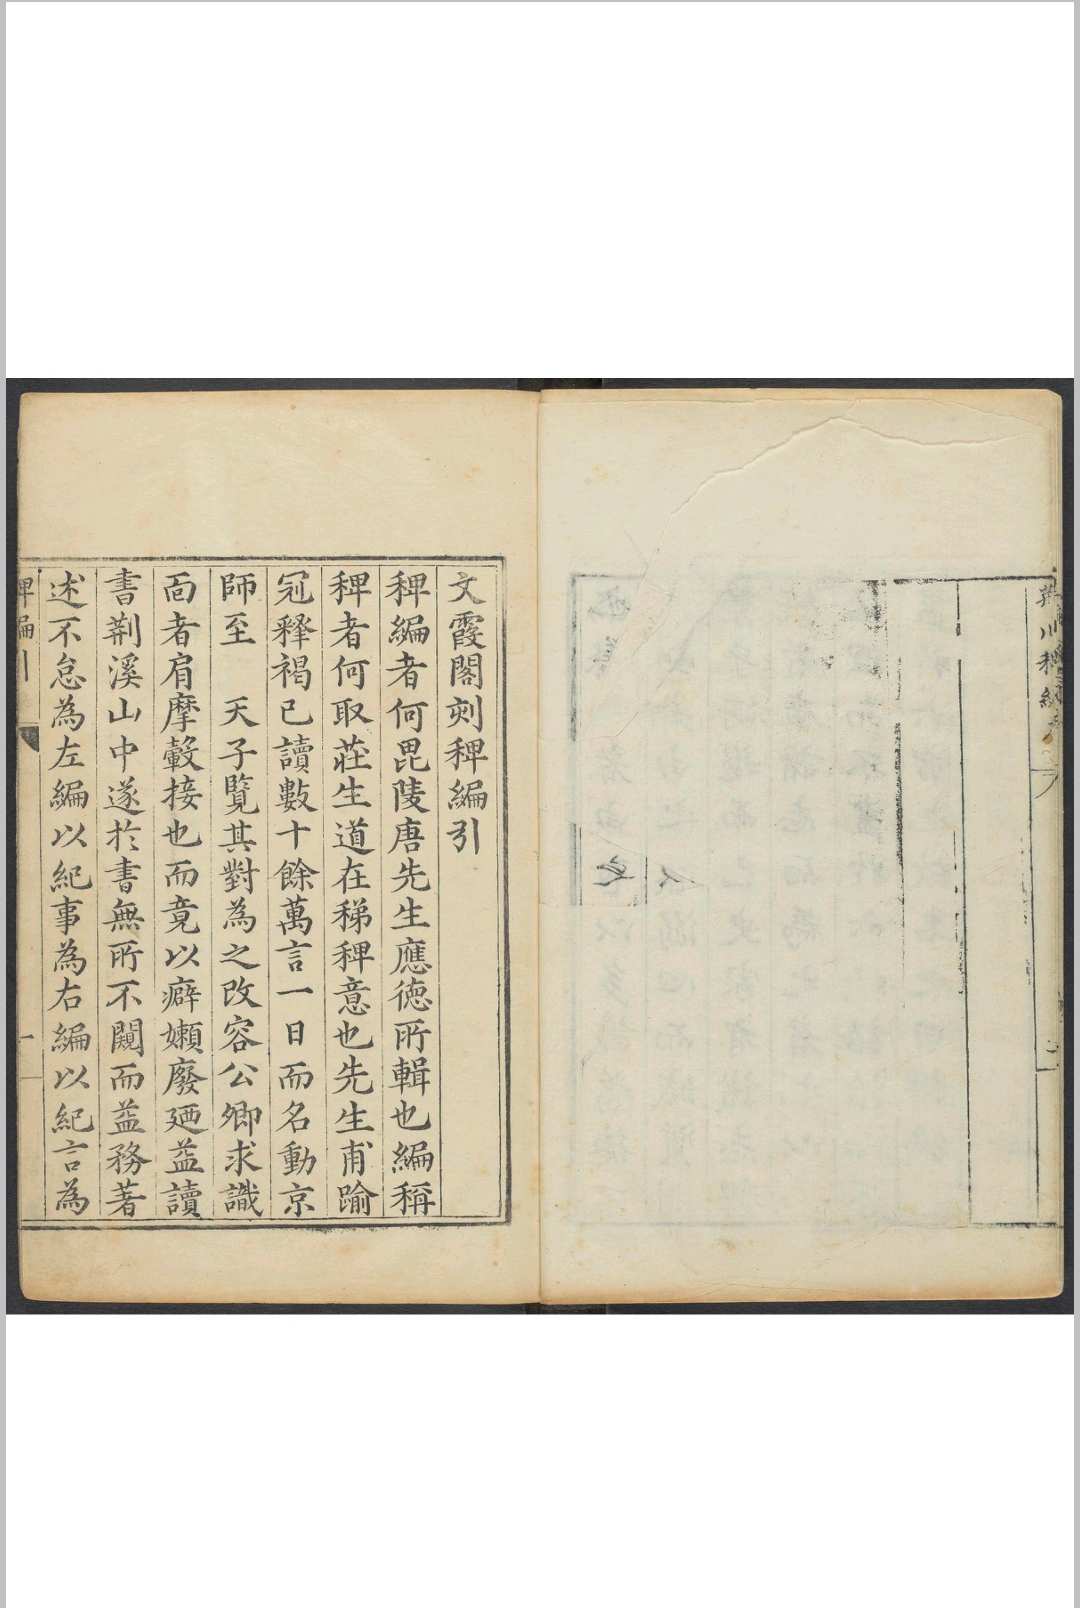 荆川稗編
文霞閣刻稗編引
稗編者何毘陵唐先生應德所輯也編稱
稗者何取莊生道在稊稗意也先生甫踰
冠釋褐已讀數十餘萬言一日而名動京
師至　天子覽其對為之改容公卿求識
面者肩摩轂接也而竟以癖嬾廢廼益讀
書荆溪山中遂於書無所不闚而益務著
述不怠為左編以紀事為右編以紀言為
稗編引
一